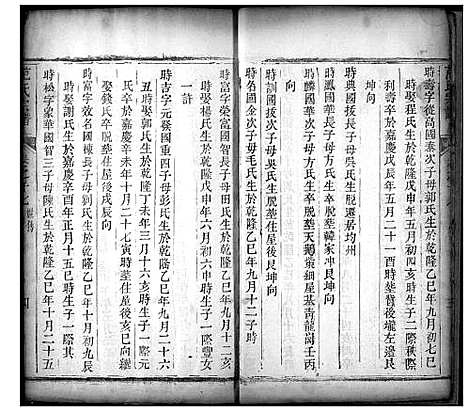 時壽字從高國泰次子母郭氏生於乾隆乙巳年九月初七巳
時娶程氏生於乾隆戊申年五月初四亥時生子二際秩際
利壽卒於嘉慶戊辰年五月二十一酉時塟背後壠左邊艮
坤向
時典國拔長子母吳氏生脫遷居均州
時㶚國華長子母方氏生卒脫塟韓家冲艮坤向
時麟國華次子母方氏生卒脫塟天鵝黨細屋基青龍崗壬丙
向
時訓國拔次子母吳氏生卒脫塟住屋後艮坤向
時名國金次子母毛氏生於乾隆乙巳年九月十二子時
時富字榮富國智長子母田氏生於乾隆乙巳年九月十二亥
時娶楊氏生於乾隆戊申年六月初六申時生子一際豐女
一許
時吉字元發國重四子母彭氏生於乾隆乙巳年九月二十六
丑時娶郭氏生於乾隆丁未年三月十六亥時生子一際元
氏卒於嘉慶辛未年十月二十七寅時塟住屋後亥巳向繼
娶錢氏卒子塟住屋後戌辰向
時富字效名國棟長子母劉氏生於乾隆乙巳年十月初九辰
時娶謝氏生於嘉慶辛酉年正月十五巳時生子一際其
時松字象華國智三子母陳氏生於乾隆乙巳年十月二十五